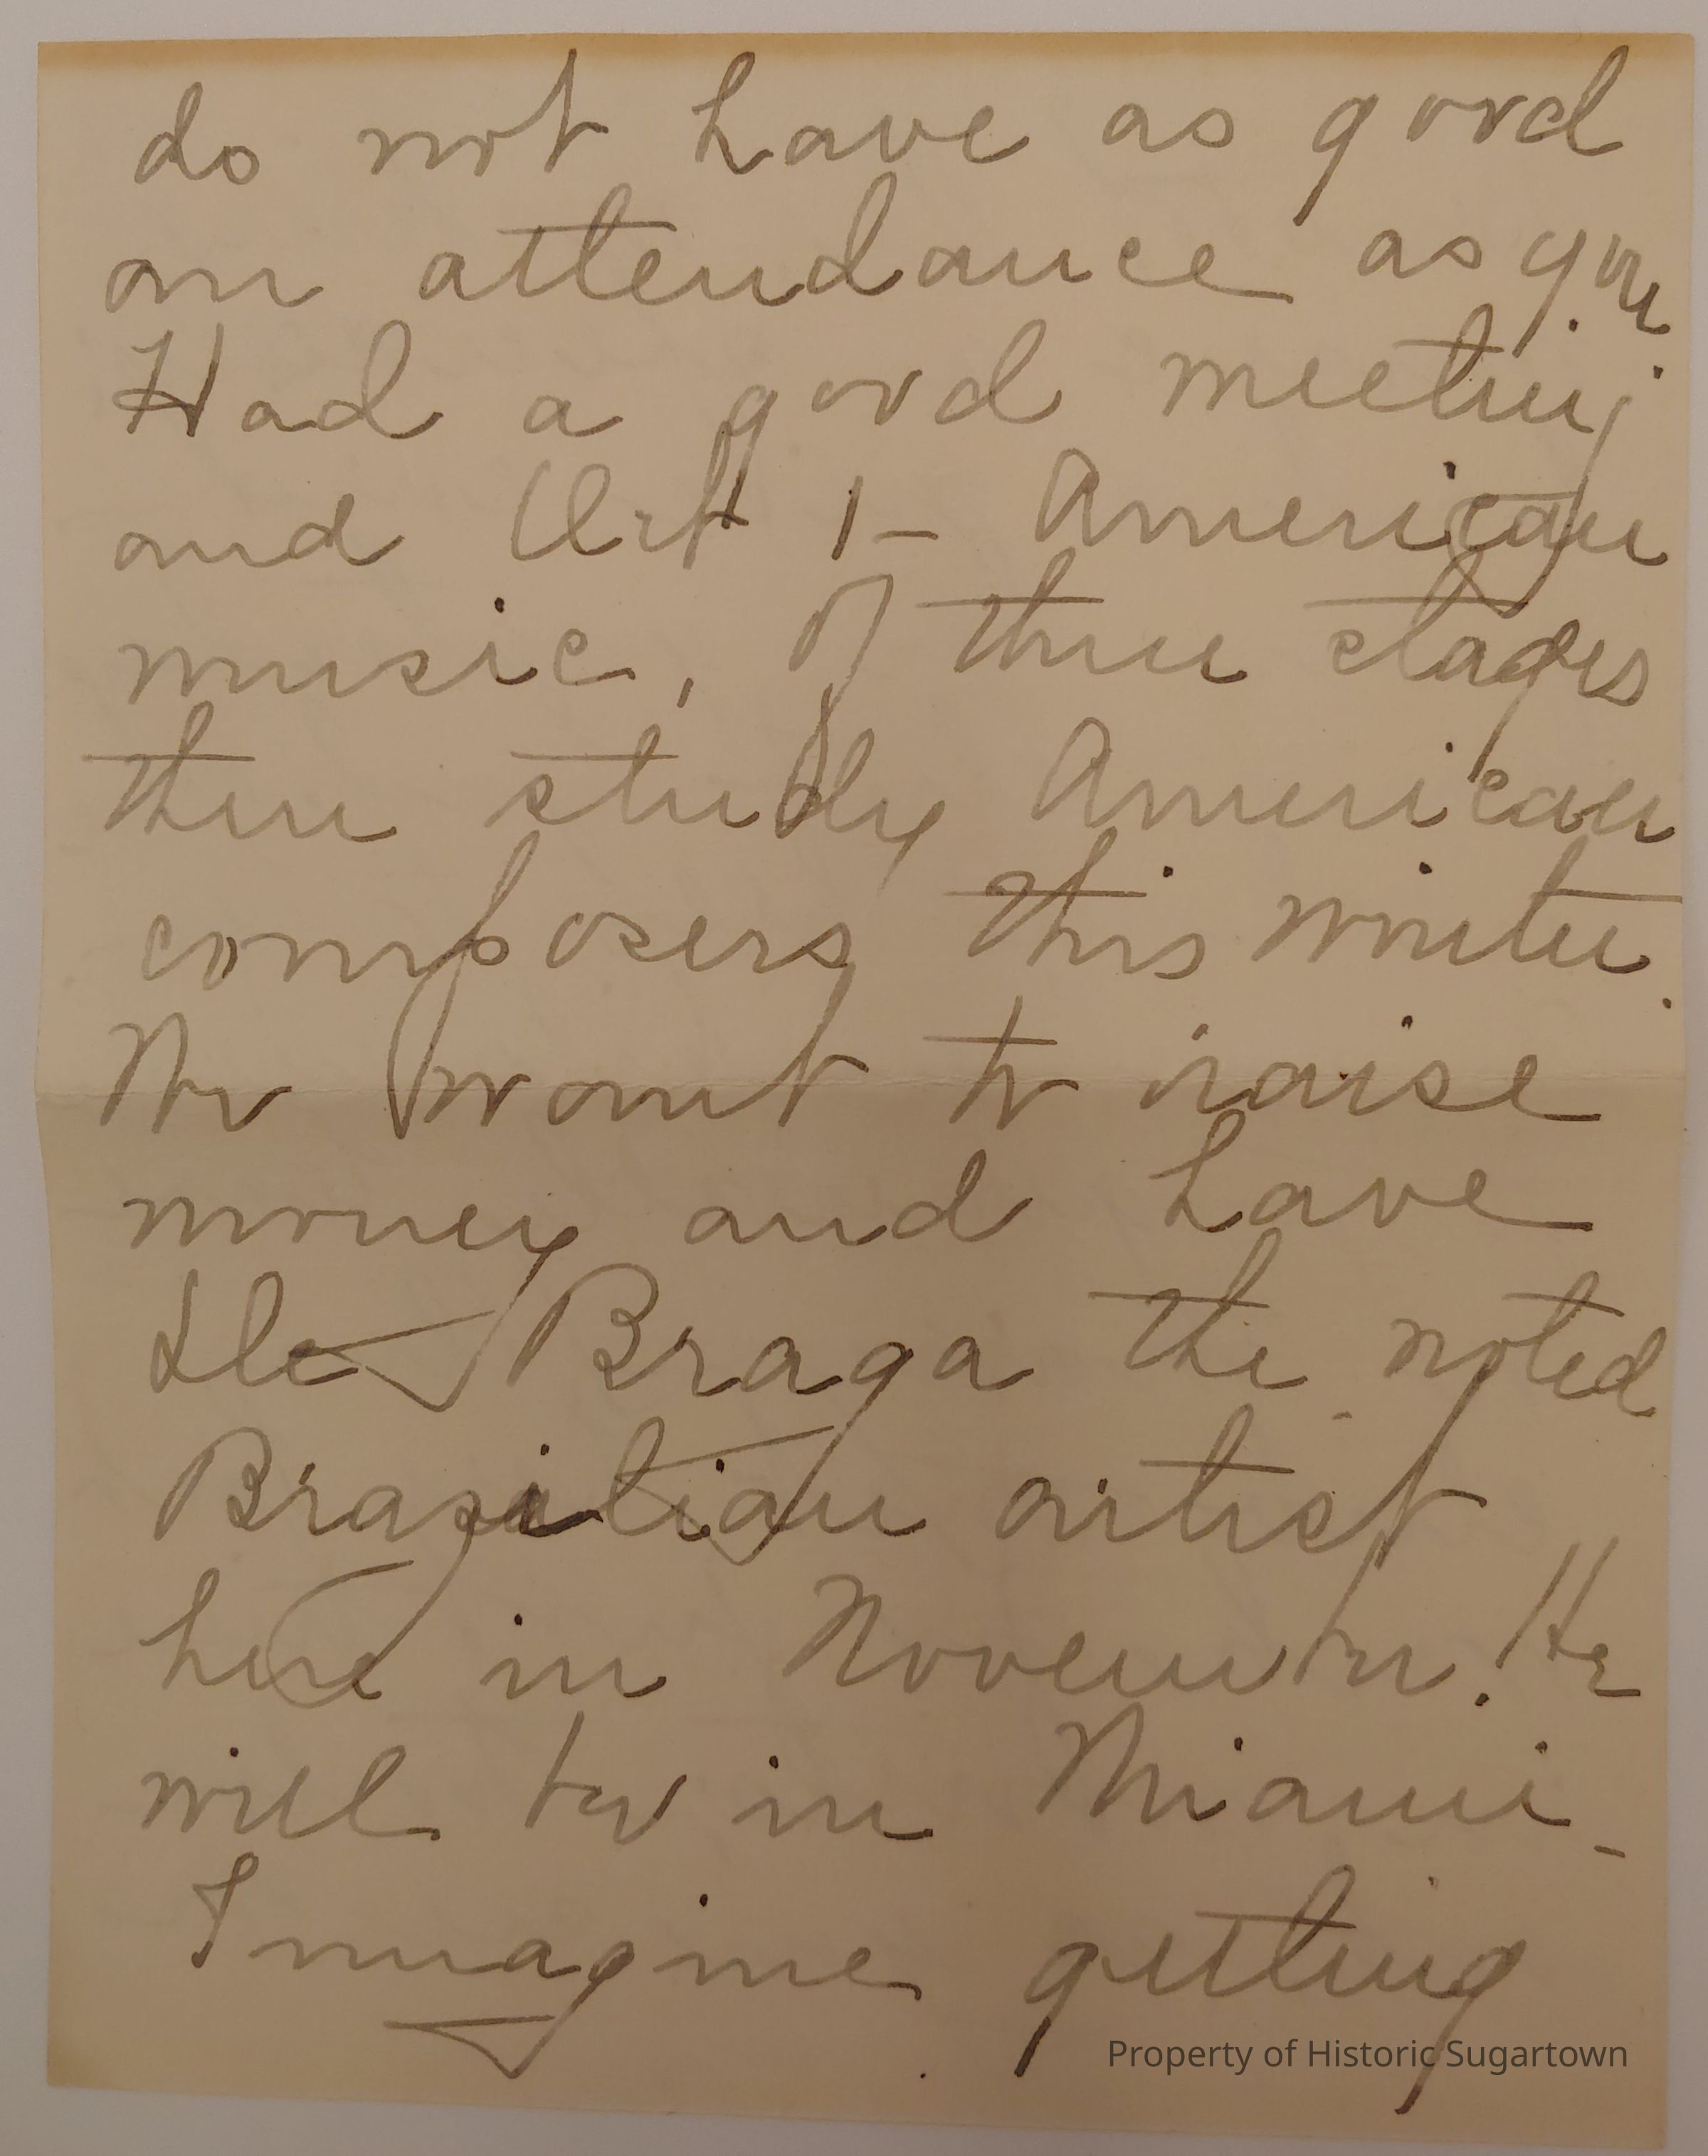 do not have as good
an attendance as you.
Had a good meeting
and Art 1 - American
music, of three stages
then study American
composers this winter.
We want to raise
money and have
De Braga the noted
Brazilian artist
here in November. He
will be in Miami -
Imagine getting
Property of Historic Sugartown